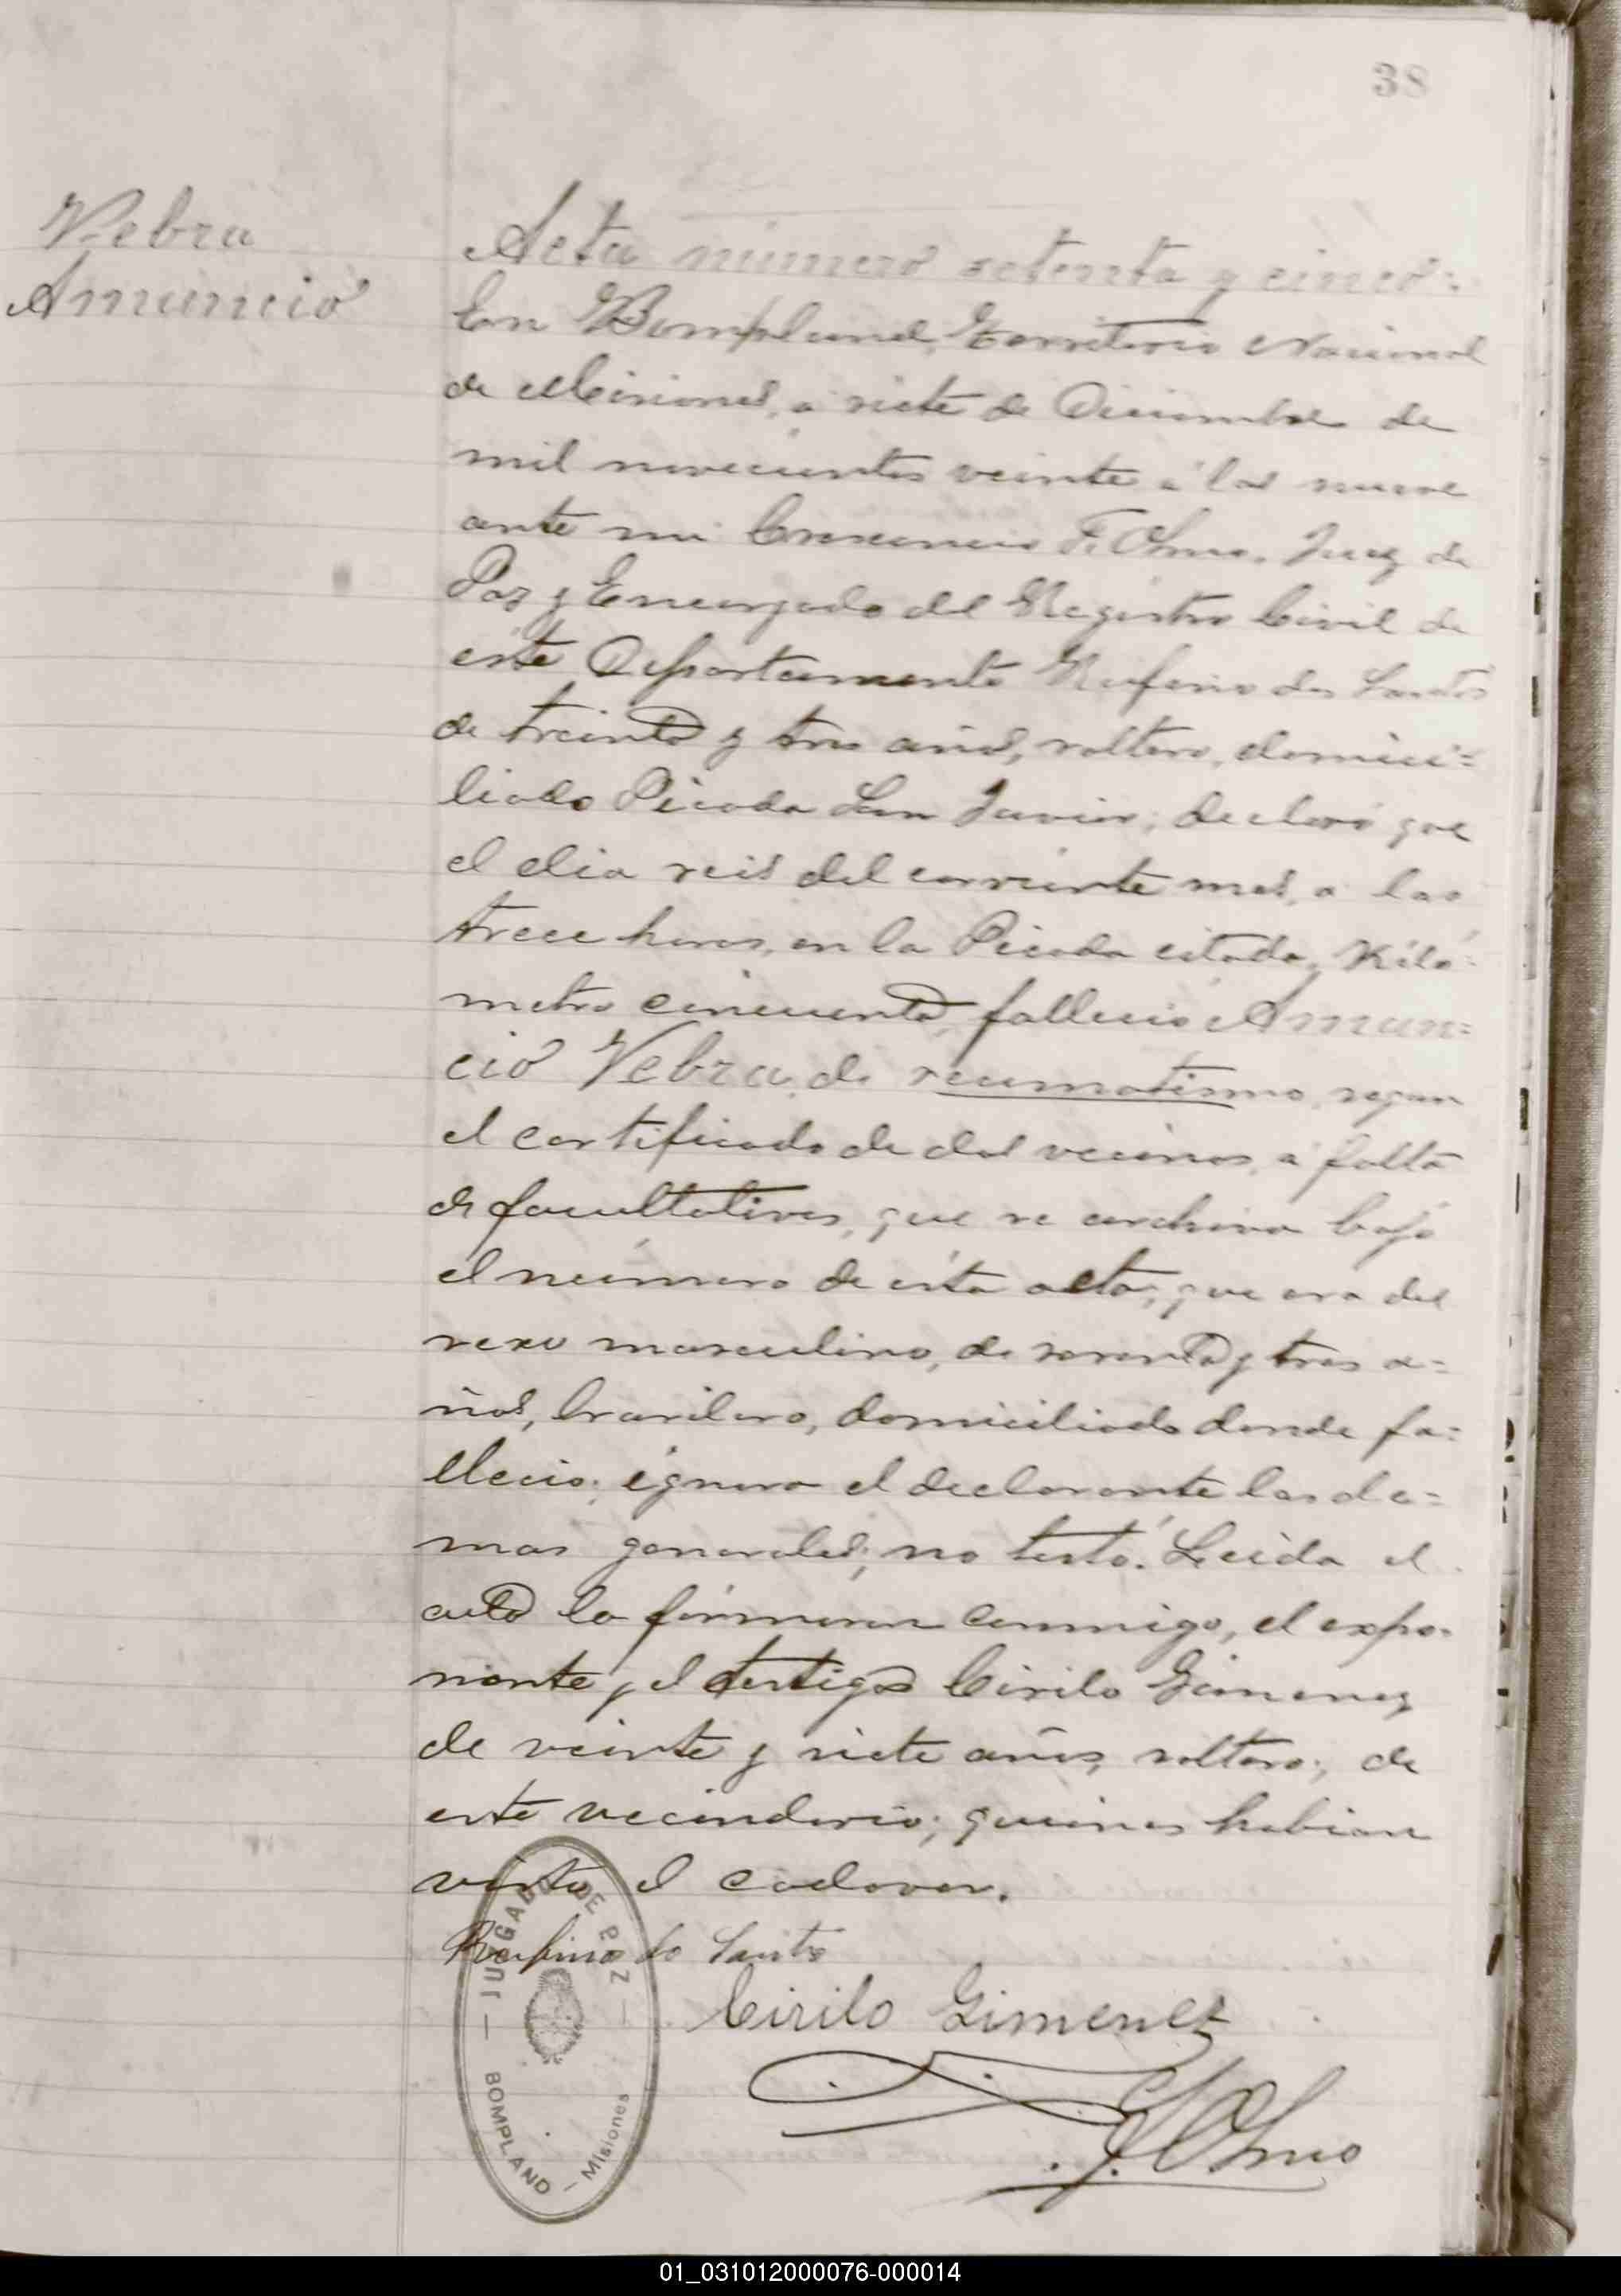 38
Vebra
Amancio
Acta número setenta y cinco:
En Bompland, Territorio Nacional
de Misiones, a siete de Diciembre de
mil novecientos veinte á las nueve
ante mi Crescencio F. Olmo, Juez de
Paz y Encargado del Registro Civil de
este Departamento Rufino dos Santos
de treinta y tres años, soltero, domici=
liado Picada San Javier; declaró que
el dia seis del corriente mes, a las
trece horas, en la Picada citada, Kiló-
metro cincuenta, falleció Aman=
cio Vebra, de reumatismo, segun
el certificado de dos vecinos, á falta
de facultativos, que se archiva bajo
el número de esta acta; que era del
sexo masculino, de y tres a=
ños, brasilero, domiciliado donde fa=
llecio; ignora el declarante las de=
mas generales; no testó. Leida el
acta la firmaron conmigo, el expo-
nente y el testigo Cirilo Gimenez
de veinte y siete años, soltero; de
este vecindario; quienes habian
visto el cadaver.
Rufino do Santo
Cirilo Gimenez
F. Olmo
JUZGADO DE PAZ
BOMPLAND - Misiones
01_031012000076-000014